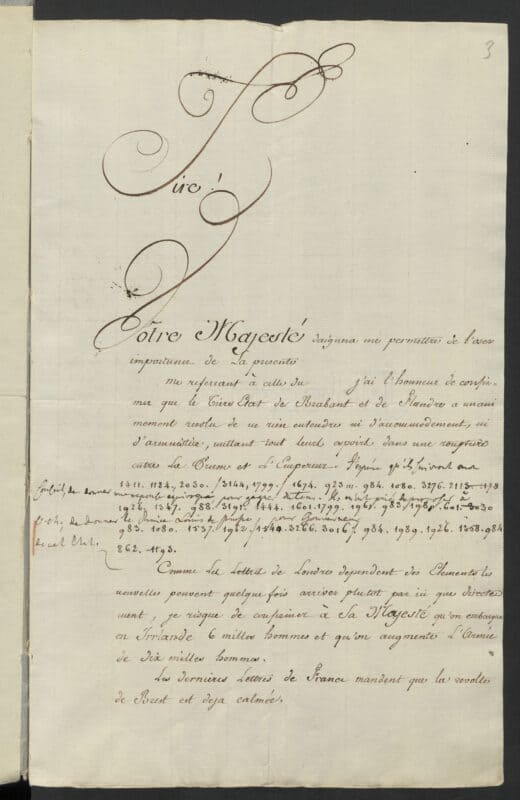 3
Sire!
Vôtre Majesté daignera me permettre de l'oser
importuner de La presente
me referant à celle du j'ai l'honneur de confir-
mer que le Tiers Etat de Brabant et de Flandre a unani
mement resolu de ne rien entendre ni d'accommodement, ni
d'armistice, mettant tout leur espoir dans une rupture
entre La Prusse et L'Empereur.
1411. 1124. 2030. 3144, 1799. 1674. 923 984. 1080. 3276. 2113.
1926. 1347. 988. 3191. 1444. 1601. 1799. 1967. 982. 601. 3030
983. 1080. 1537. 1962. 1540. 3266. 3016. 984. 1989. 1926. 1358. 984
de cet Etat.
862. 1193.
Comme les Lettres de Londres dependent des Elements les
nouvelles peuvent quelque fois arriver plutot par ici que directe
ment, je risque de confirmer à Sa Majesté qu'on embarque
en Irrlande 6 milles hommes et qu'on augmente L'Armée
de dix milles hommes.
Les dernieres Lettres de France mandent que la revolte
de Brest est deja calmée.